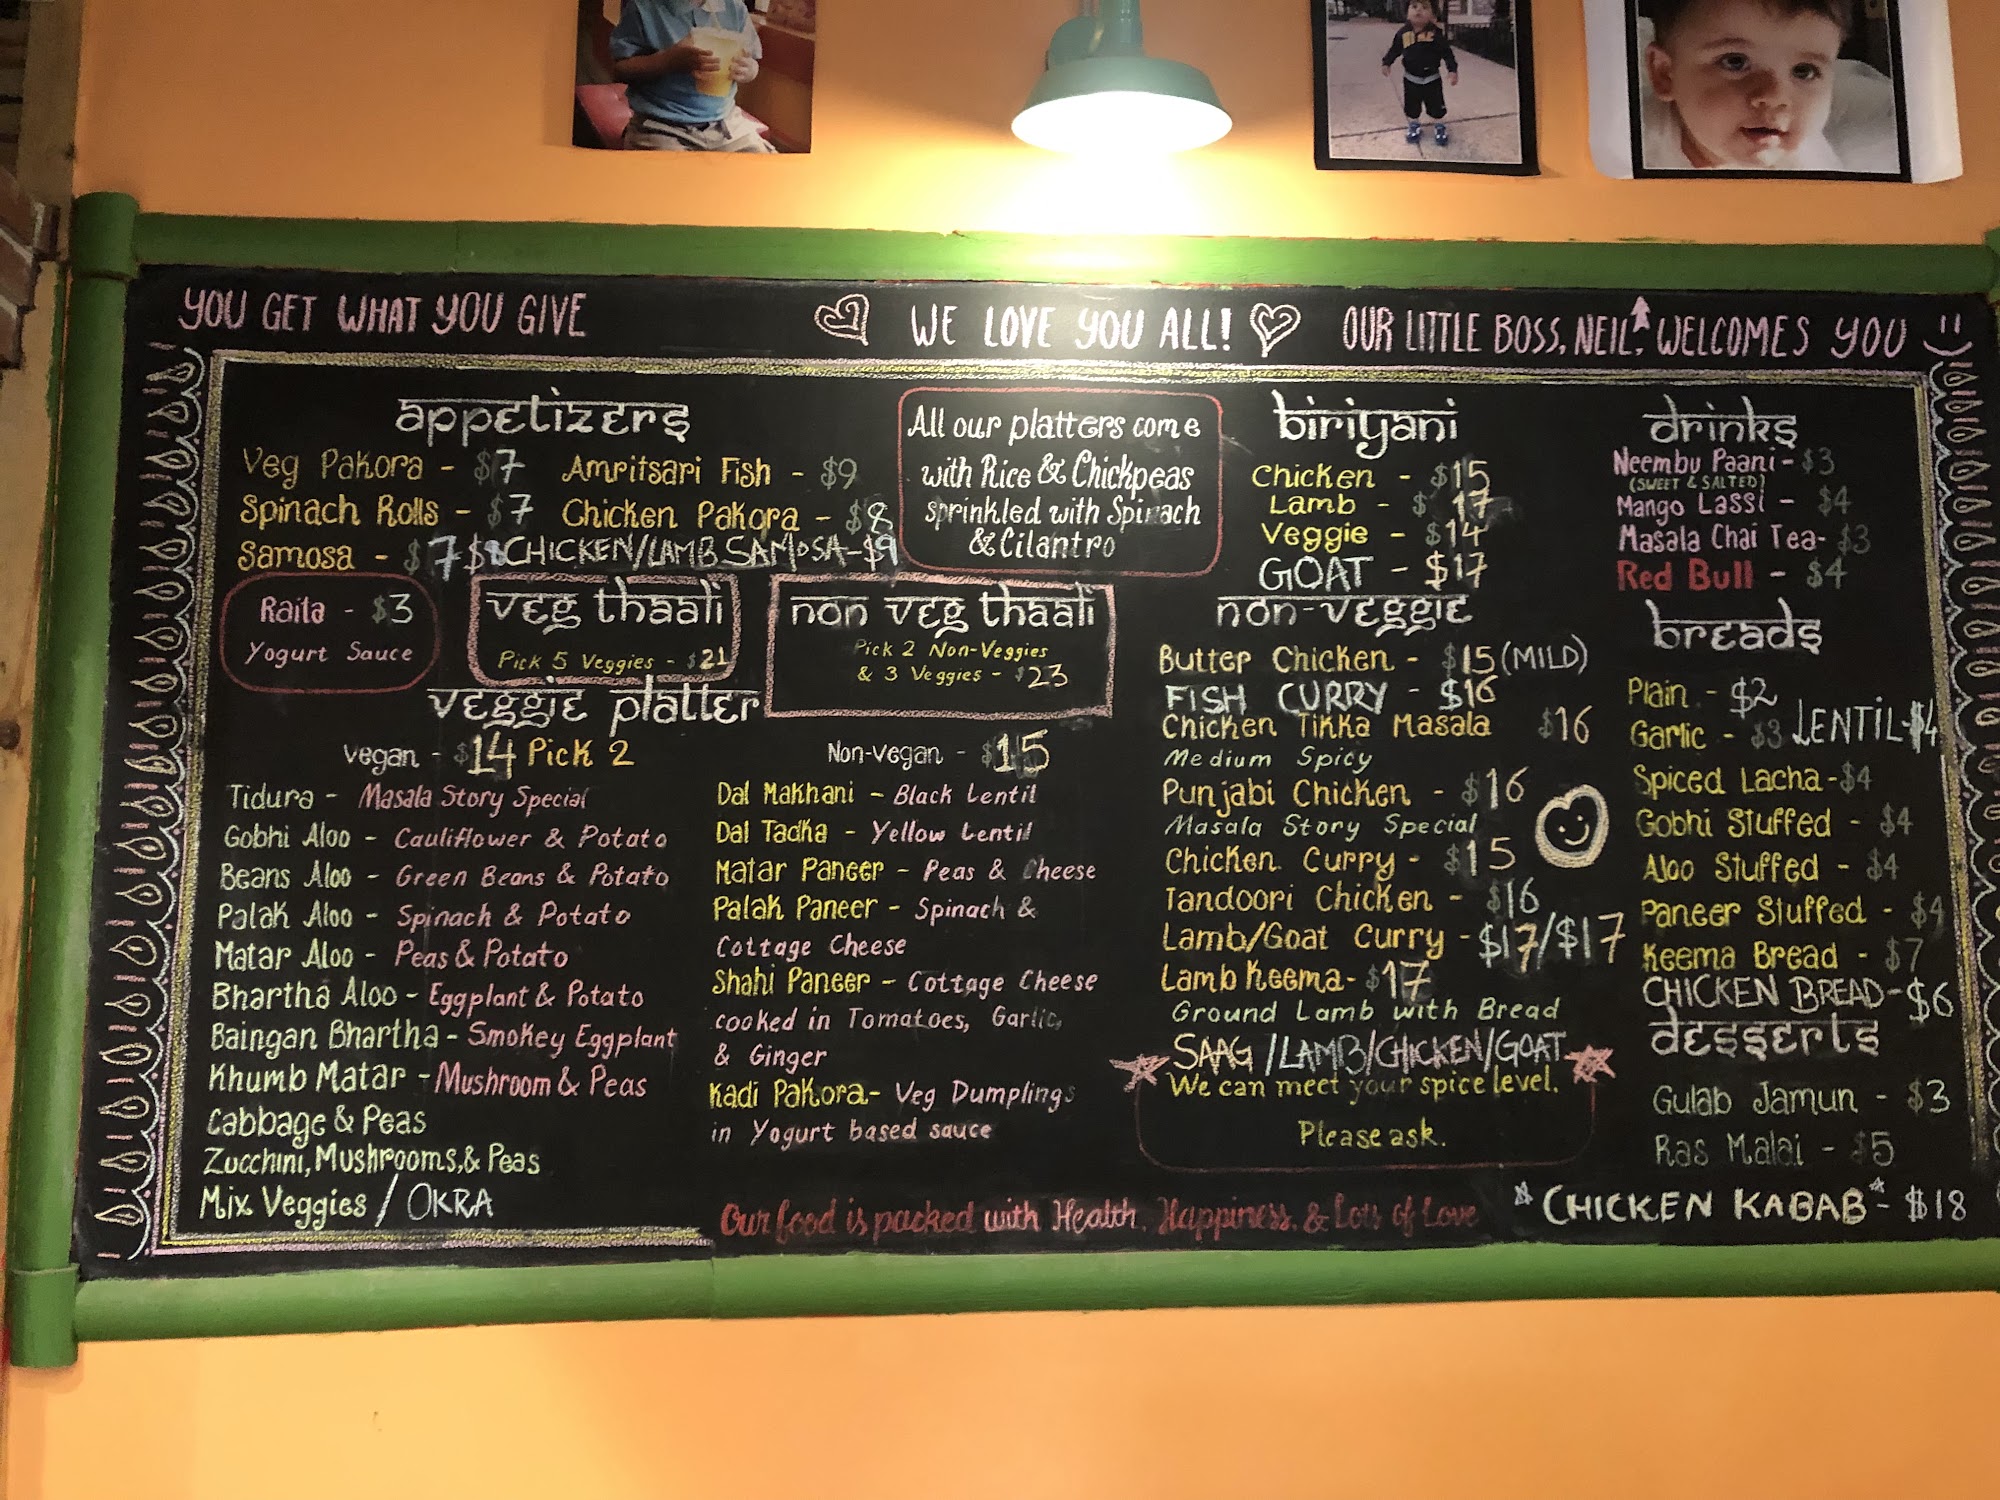 YOU GET WHAT YOU GIVE
WE LOVE YOU ALL!
OUR LITTLE BOSS, NEIL, WELCOMES YOU
appetizers
Veg Pakora - $7
Amritsari Fish - $9
Spinach Rolls - $7
Chicken Pakora - $8
Samosa - $7
CHICKEN/LAMB SAMOSA - $9
Raita - $3
Yogurt Sauce
veg thaali
Pick 5 Veggies - $21
non veg thaali
Pick 2 Non-Veggies
& 3 Veggies - $23
All our platters come
with Rice & Chickpeas
sprinkled with Spinach
& Cilantro
veggie platter
Vegan - $14 Pick 2
Tidura - Masala Story Special
Gobhi Aloo - Cauliflower & Potato
Beans Aloo - Green Beans & Potato
Palak Aloo - Spinach & Potato
Matar Aloo - Peas & Potato
Bhartha Aloo - Eggplant & Potato
Baingan Bhartha - Smokey Eggplant
Khumb Matar - Mushroom & Peas
Cabbage & Peas
Zucchini, Mushrooms, & Peas
Mix Veggies / OKRA
Non-Vegan - $15
Dal Makhani - Black Lentil
Dal Tadka - Yellow Lentil
Matar Paneer - Peas & Cheese
Palak Paneer - Spinach &
Cottage Cheese
Shahi Paneer - Cottage Cheese
cooked in Tomatoes, Garlic,
& Ginger
Kadi Pakora - Veg Dumplings
in Yogurt based sauce
Our food is packed with Health, Happiness, & Lots of Love
biriyani
Chicken - $15
Lamb - $17
Veggie - $14
GOAT - $17
non-veggie
Butter Chicken - $15 (MILD)
FISH CURRY - $16
Chicken Tikka Masala $16
Medium Spicy
Punjabi Chicken - $16
Masala Story Special
Chicken Curry - $15
Tandoori Chicken - $16
Lamb/Goat Curry - $17/$17
Lamb Keema - $17
Ground Lamb with Bread
SAAG/LAMB/CHICKEN/GOAT
We can meet your spice level.
Please ask.
drinks
Neembu Paani - $3
(SWEET & SALTED)
Mango Lassi - $4
Masala Chai Tea - $3
Red Bull - $4
breads
Plain - $2
Garlic - $3
LENTIL - $4
Spiced Lacha - $4
Gobhi Stuffed - $4
Aloo Stuffed - $4
Paneer Stuffed - $4
Keema Bread - $7
CHICKEN BREAD - $6
desserts
Gulab Jamun - $3
Ras Malai - $5
*CHICKEN KABAB* - $18